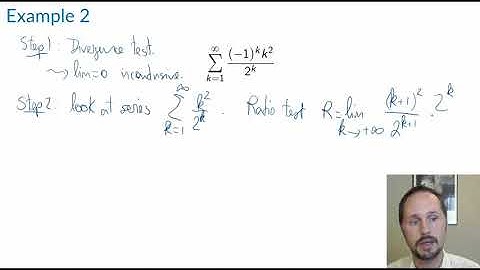 Example 2
Step 1: Divergence test.
→ lim=0 inconclusive.
\sum_{k=1}^{\infty} \frac{(-1)^k k^2}{2^k}
Step 2: look at series \sum_{k=1}^{\infty} \frac{k^2}{2^k}. Ratio test R=\lim_{k→+∞} \frac{(k+1)^2}{2^{k+1}} . 2^k